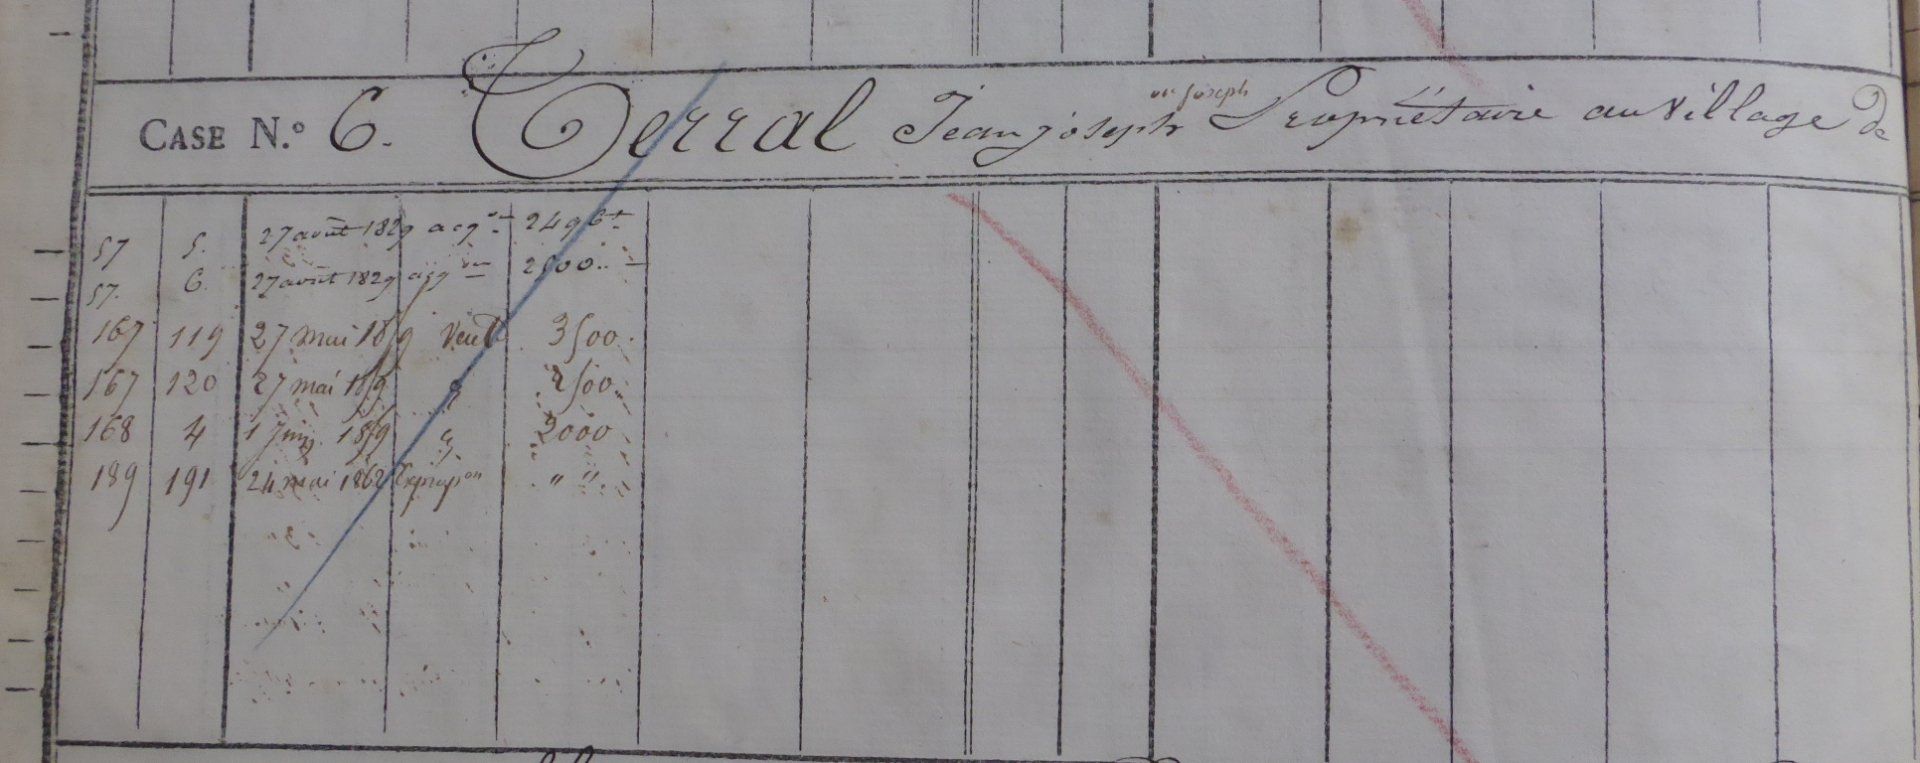 ou joseph
CASE N.° 6. Terral Jean joseph Propriétaire au village de
57 5. 27 août 1829 acq.on 2496 t
57. 6. 27 août 1829 acq on 2500..
167 119 27 mai 1859 Vente 3500.
167 120 27 mai 1859 2500.
168 4 1 Juin 1859 2000
189 191 24 mai 1862 Expropon " "